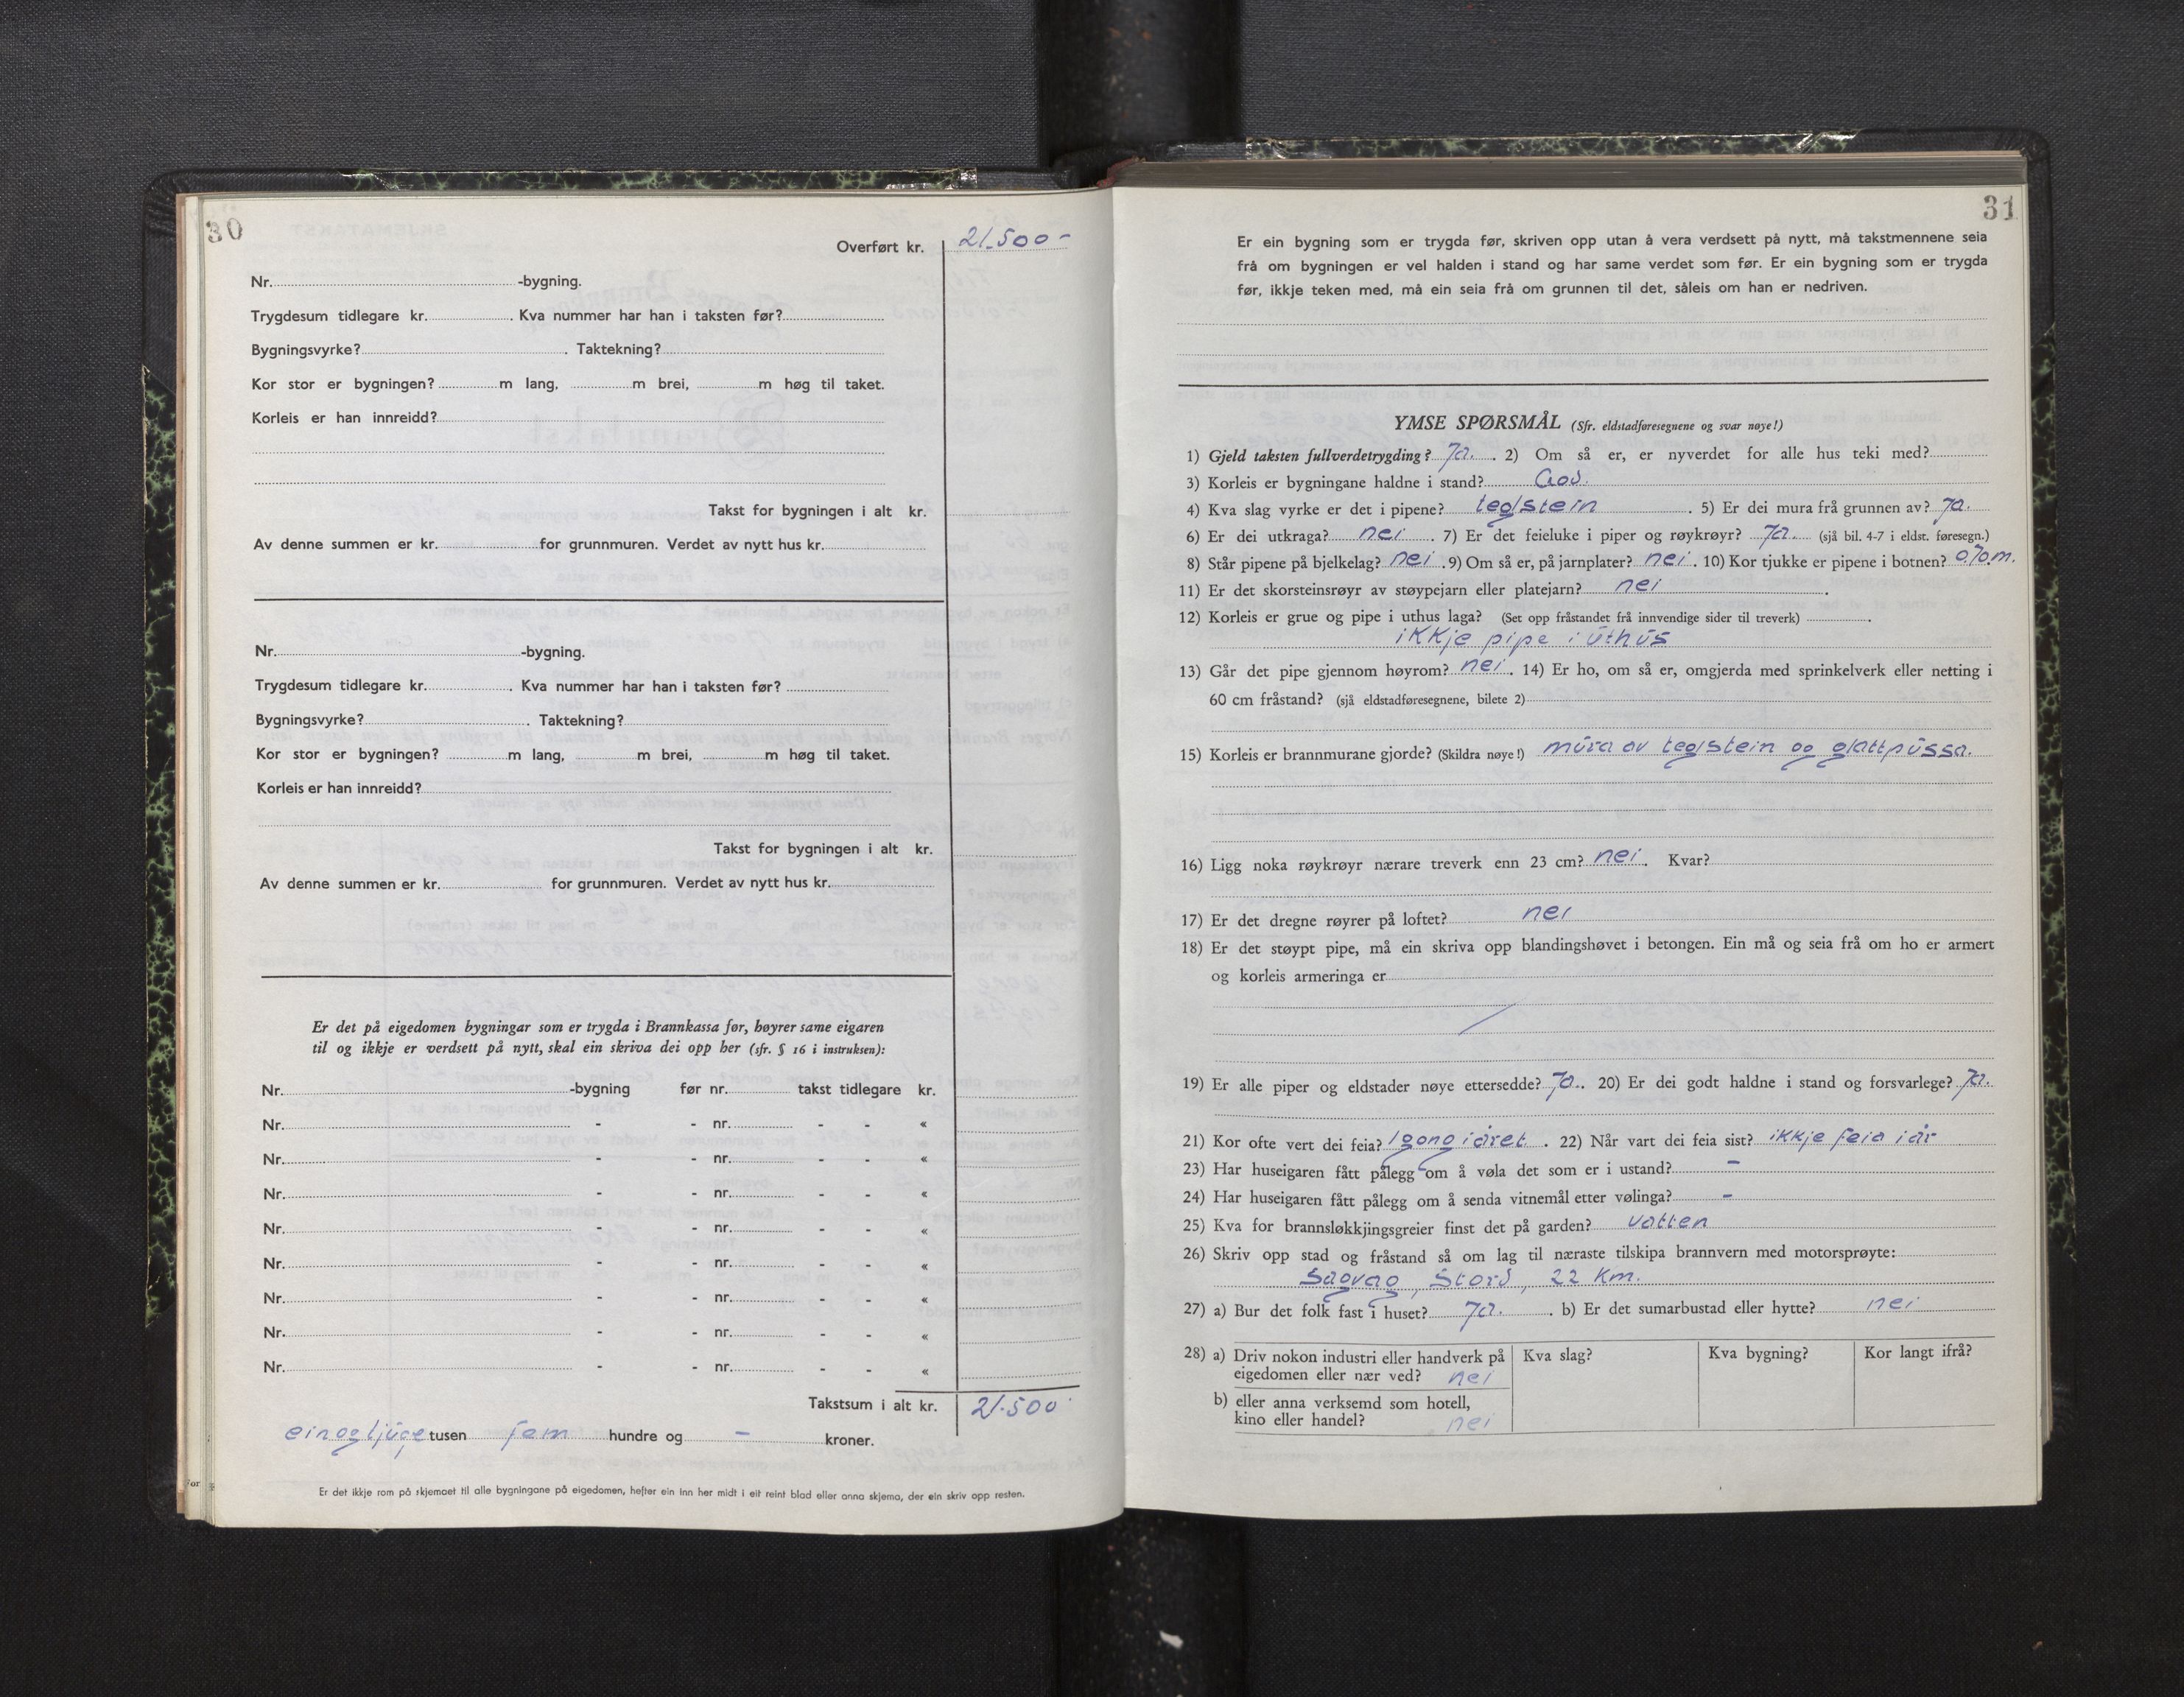 30
Overført kr. 21.500-
Nr. -bygning.
Trygdesum tidlegare kr. . Kva nummer har han i taksten før?
Bygningsvyrke? . Taktekning?
Kor stor er bygningen? m lang, m brei, m høg til taket.
Korleis er han innreidd?
Takst for bygningen i alt kr.
Av denne summen er kr. for grunnmuren. Verdet av nytt hus kr.
Nr. -bygning.
Trygdesum tidlegare kr. . Kva nummer har han i taksten før?
Bygningsvyrke? . Taktekning?
Kor stor er bygningen? m lang, m brei, m høg til taket.
Korleis er han innreidd?
Takst for bygningen i alt kr.
Av denne summen er kr. for grunnmuren. Verdet av nytt hus kr.
Er det på eigedomen bygningar som er trygda i Brannkassa før, høyrer same eigaren
til og ikkje er verdsett på nytt, skal ein skriva dei opp her (sfr. § 16 i instruksen):
Nr. -bygning før nr. takst tidlegare kr.
Nr. - - nr. - - «
Nr. - - nr. - - «
Nr. - - nr. - - «
Nr. - - nr. - - «
Nr. - - nr. - - «
Nr. - - nr. - - «
Nr. - - nr. - - «
Nr. - - nr. - - «
Takstsum i alt kr. 21.500
einogtjuge tusen fem hundre og - kroner.
Er det ikkje rom på skjemaet til alle bygningane på eigedomen, hefter ein inn her midt i eit reint blad eller anna skjema, der ein skriv opp resten.
31
Er ein bygning som er trygda før, skriven opp utan å vera verdsett på nytt, må takstmennene seia
frå om bygningen er vel halden i stand og har same verdet som før. Er ein bygning som er trygda
før, ikkje teken med, må ein seia frå om grunnen til det, såleis om han er nedriven.
YMSE SPØRSMÅL (Sfr. eldstadføresegnene og svar nøye!)
1) Gjeld taksten fullverdetrygding? Ja. . 2) Om så er, er nyverdet for alle hus teki med?
3) Korleis er bygningane haldne i stand? God.
4) Kva slag vyrke er det i pipene? teglstein . 5) Er dei mura frå grunnen av? Ja.
6) Er dei utkraga? nei . 7) Er det feieluke i piper og røykrøyr? Ja. (sjå bil. 4-7 i eldst. føresegn.)
8) Står pipene på bjelkelag? nei . 9) Om så er, på jarnplater? nei . 10) Kor tjukke er pipene i botnen? 0.70.m.
11) Er det skorsteinsrøyr av støypejarn eller platejarn? nei .
12) Korleis er grue og pipe i uthus laga? (Set opp fråstandet frå innvendige sider til treverk) .
ikkje pipe i uthus
13) Går det pipe gjennom høyrom? nei . 14) Er ho, om så er, omgjerda med sprinkelverk eller netting i
60 cm fråstand? (sjå eldstadføresegnene, bilete 2)
15) Korleis er brannmurane gjorde? (Skildra nøye!) mura av teglstein og glattpussa.
16) Ligg noka røykrøyr nærare treverk enn 23 cm? nei . Kvar?
17) Er det dregne røyrer på loftet? nei
18) Er det støypt pipe, må ein skriva opp blandingshøvet i betongen. Ein må og seia frå om ho er armert
og korleis armeringa er
19) Er alle piper og eldstader nøye ettersedde? Ja. . 20) Er dei godt haldne i stand og forsvarlege? Ja.
21) Kor ofte vert dei feia? 1 gong i året . 22) Når vart dei feia sist? ikkje feia i år
23) Har huseigaren fått pålegg om å vøla det som er i ustand? -
24) Har huseigaren fått pålegg om å senda vitnemål etter vølinga? -
25) Kva for brannsløkkjingsgreier finst det på garden? vatten
26) Skriv opp stad og fråstand så om lag til næraste tilskipa brannvern med motorsprøyte:
Sagvag, Stord, 22 Km.
27) a) Bur det folk fast i huset? Ja. . b) Er det sumarbustad eller hytte? nei
28) a) Driv nokon industri eller handverk på Kva slag? Kva bygning? Kor langt ifrå?
eigedomen eller nær ved? nei
b) eller anna verksemd som hotell,
kino eller handel? nei